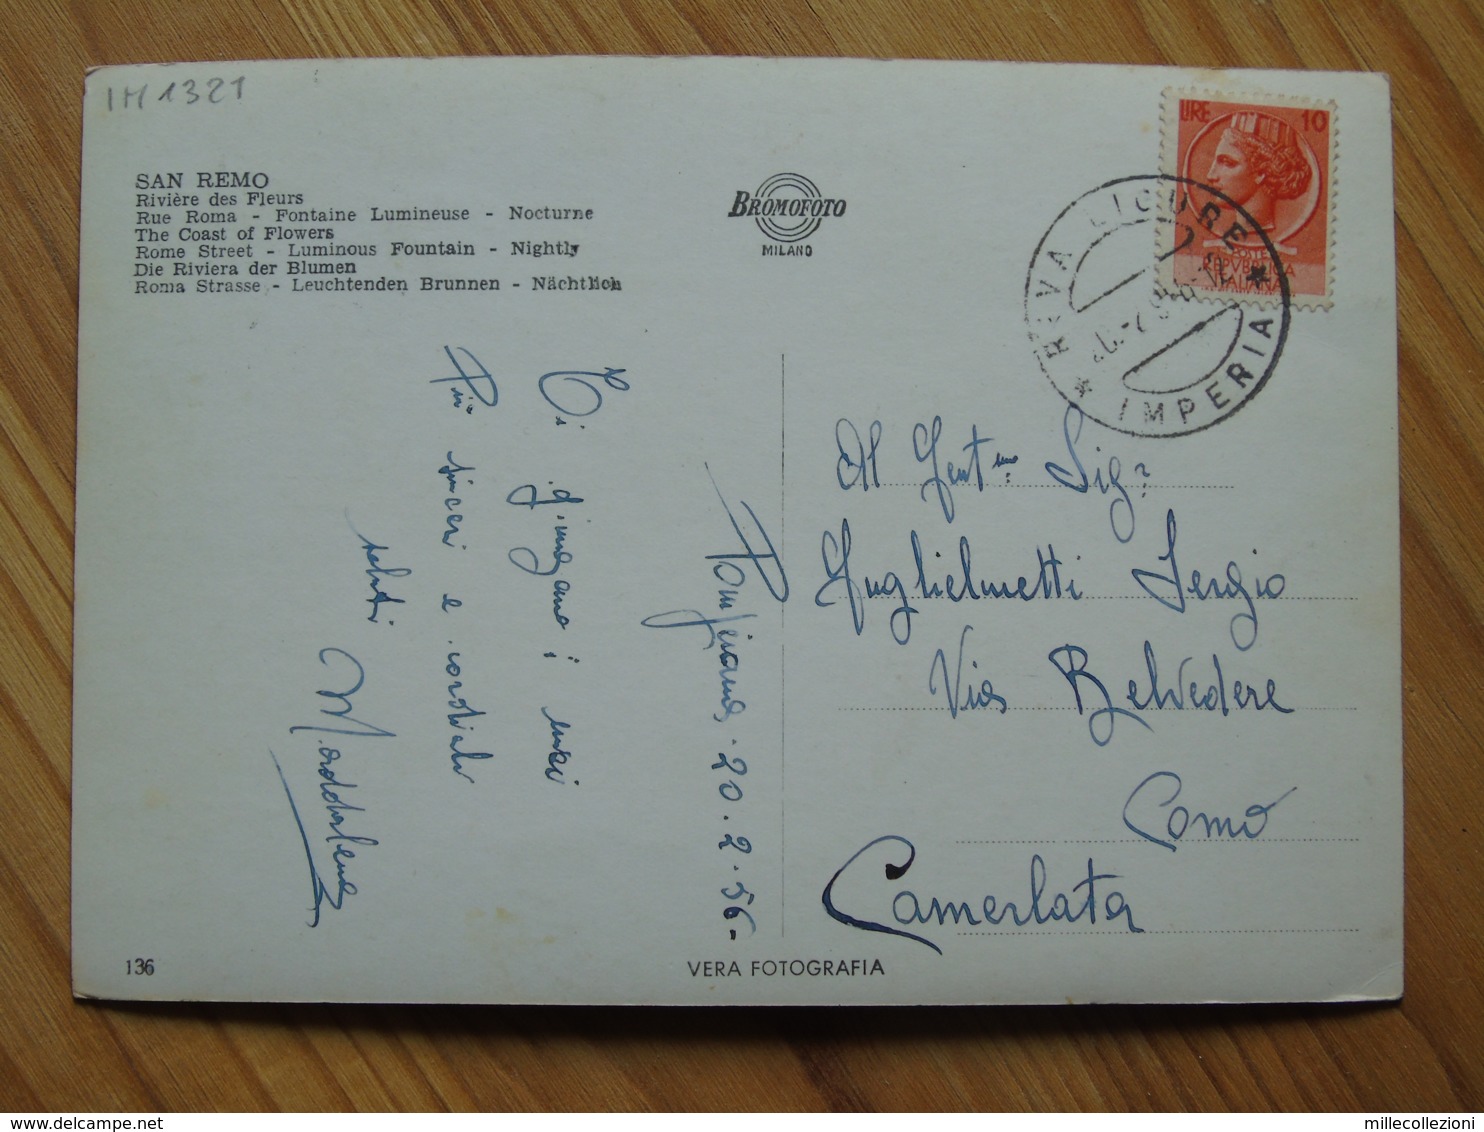 IM 1321
SAN REMO
Rivière des Fleurs
Rue Roma - Fontaine Lumineuse - Nocturne
The Coast of Flowers
Rome Street - Luminous Fountain - Nightly
Die Riviera der Blumen
Roma Strasse - Leuchtenden Brunnen - Nächtlich
BROMOFOTO
MILANO
LIRE 10
POSTE
REPVBBLICA
ITALIANA
RIVA LIGURE
IMPERIA
Ti giungano i miei
più sinceri e cordiali
saluti
Maddalena
20.2.56-
Al Gent.mo Sig.
Guglielmetti Sergio
Via Belvedere
Como
Camerlata
136
VERA FOTOGRAFIA
millecollezioni